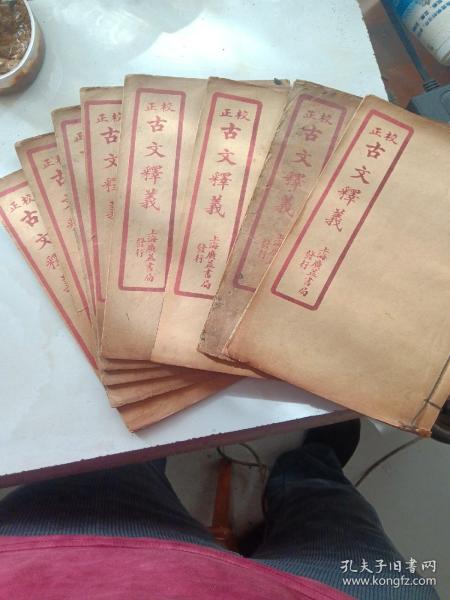 校正
古文釋義
校正
古文釋義
校正
古文釋義
校正
古文釋義
校正
古文釋義
上海廣益書局
發行
校正
古文釋義
上海廣益書局
發行
校正
古文釋義
上海廣益書局
發行
校正
古文釋義
上海廣益書局
發行
孔夫子旧书网
www.kongfz.com